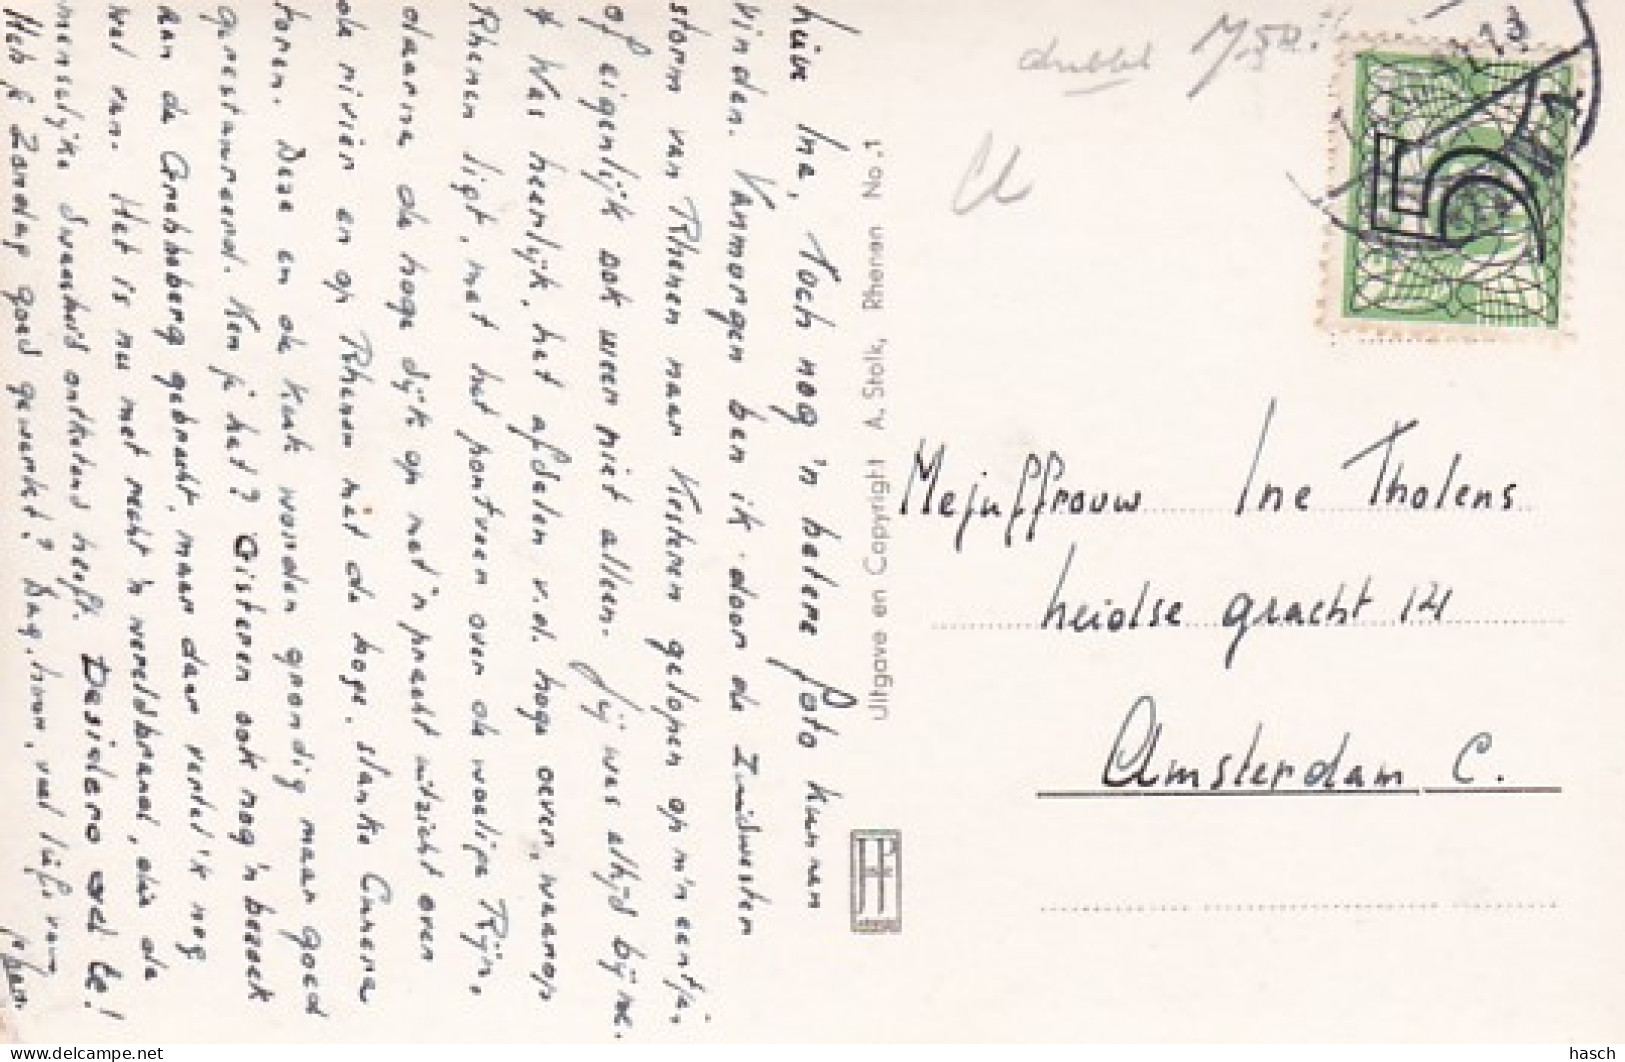 Lieve Ine, Toch nog 'n betere foto kunnen
vinden. Vanmorgen ben ik door de Zuidwesten
storm van Rhenen naar Kesteren gelopen op m'n eentje,
of eigenlijk ook weer niet alleen. Jij was altijd bij me.
't Was heerlijk, het afdalen v.d. hoge oever, waarop
Rhenen ligt, met het pontveer over de woelige Rijn,
daarna de hoge dijk op met 'n pracht uitzicht over
de rivier en op Rhenen met de hoge, slanke Cunera
toren. Deze en de Kerk worden grondig maar goed
gerestaureerd. Ken je het? Gisteren ook nog 'n bezoek
aan de Grebbeberg gebracht, maar daar vertel 'k nog
wel van. Het is nu met recht 'n wereldbrand, die de
menselijke dwaasheid ontketend heeft. Desidero ad te!
Heb je Zondag goed gewerkt? Dag, hoor, veel liefs van
Uitgave en Copyright A. Stolk, Rhenen No. 1
dubbel 7,50
5
Mejuffrouw Ine Tholens
Leidse gracht 14
Amsterdam C.
hasch